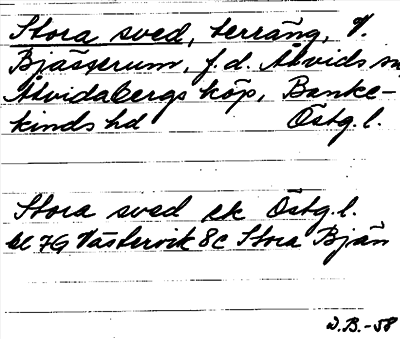 Stora sved, terräng, V.
Bjässerum, f.d. Åtvids sn,
Åtvidabergs köp, Banke-
kinds hd Östg.l.
Stora sved ek Östg.l.
bl 7G Västervik 8c Stora Bjän
W.B.-58